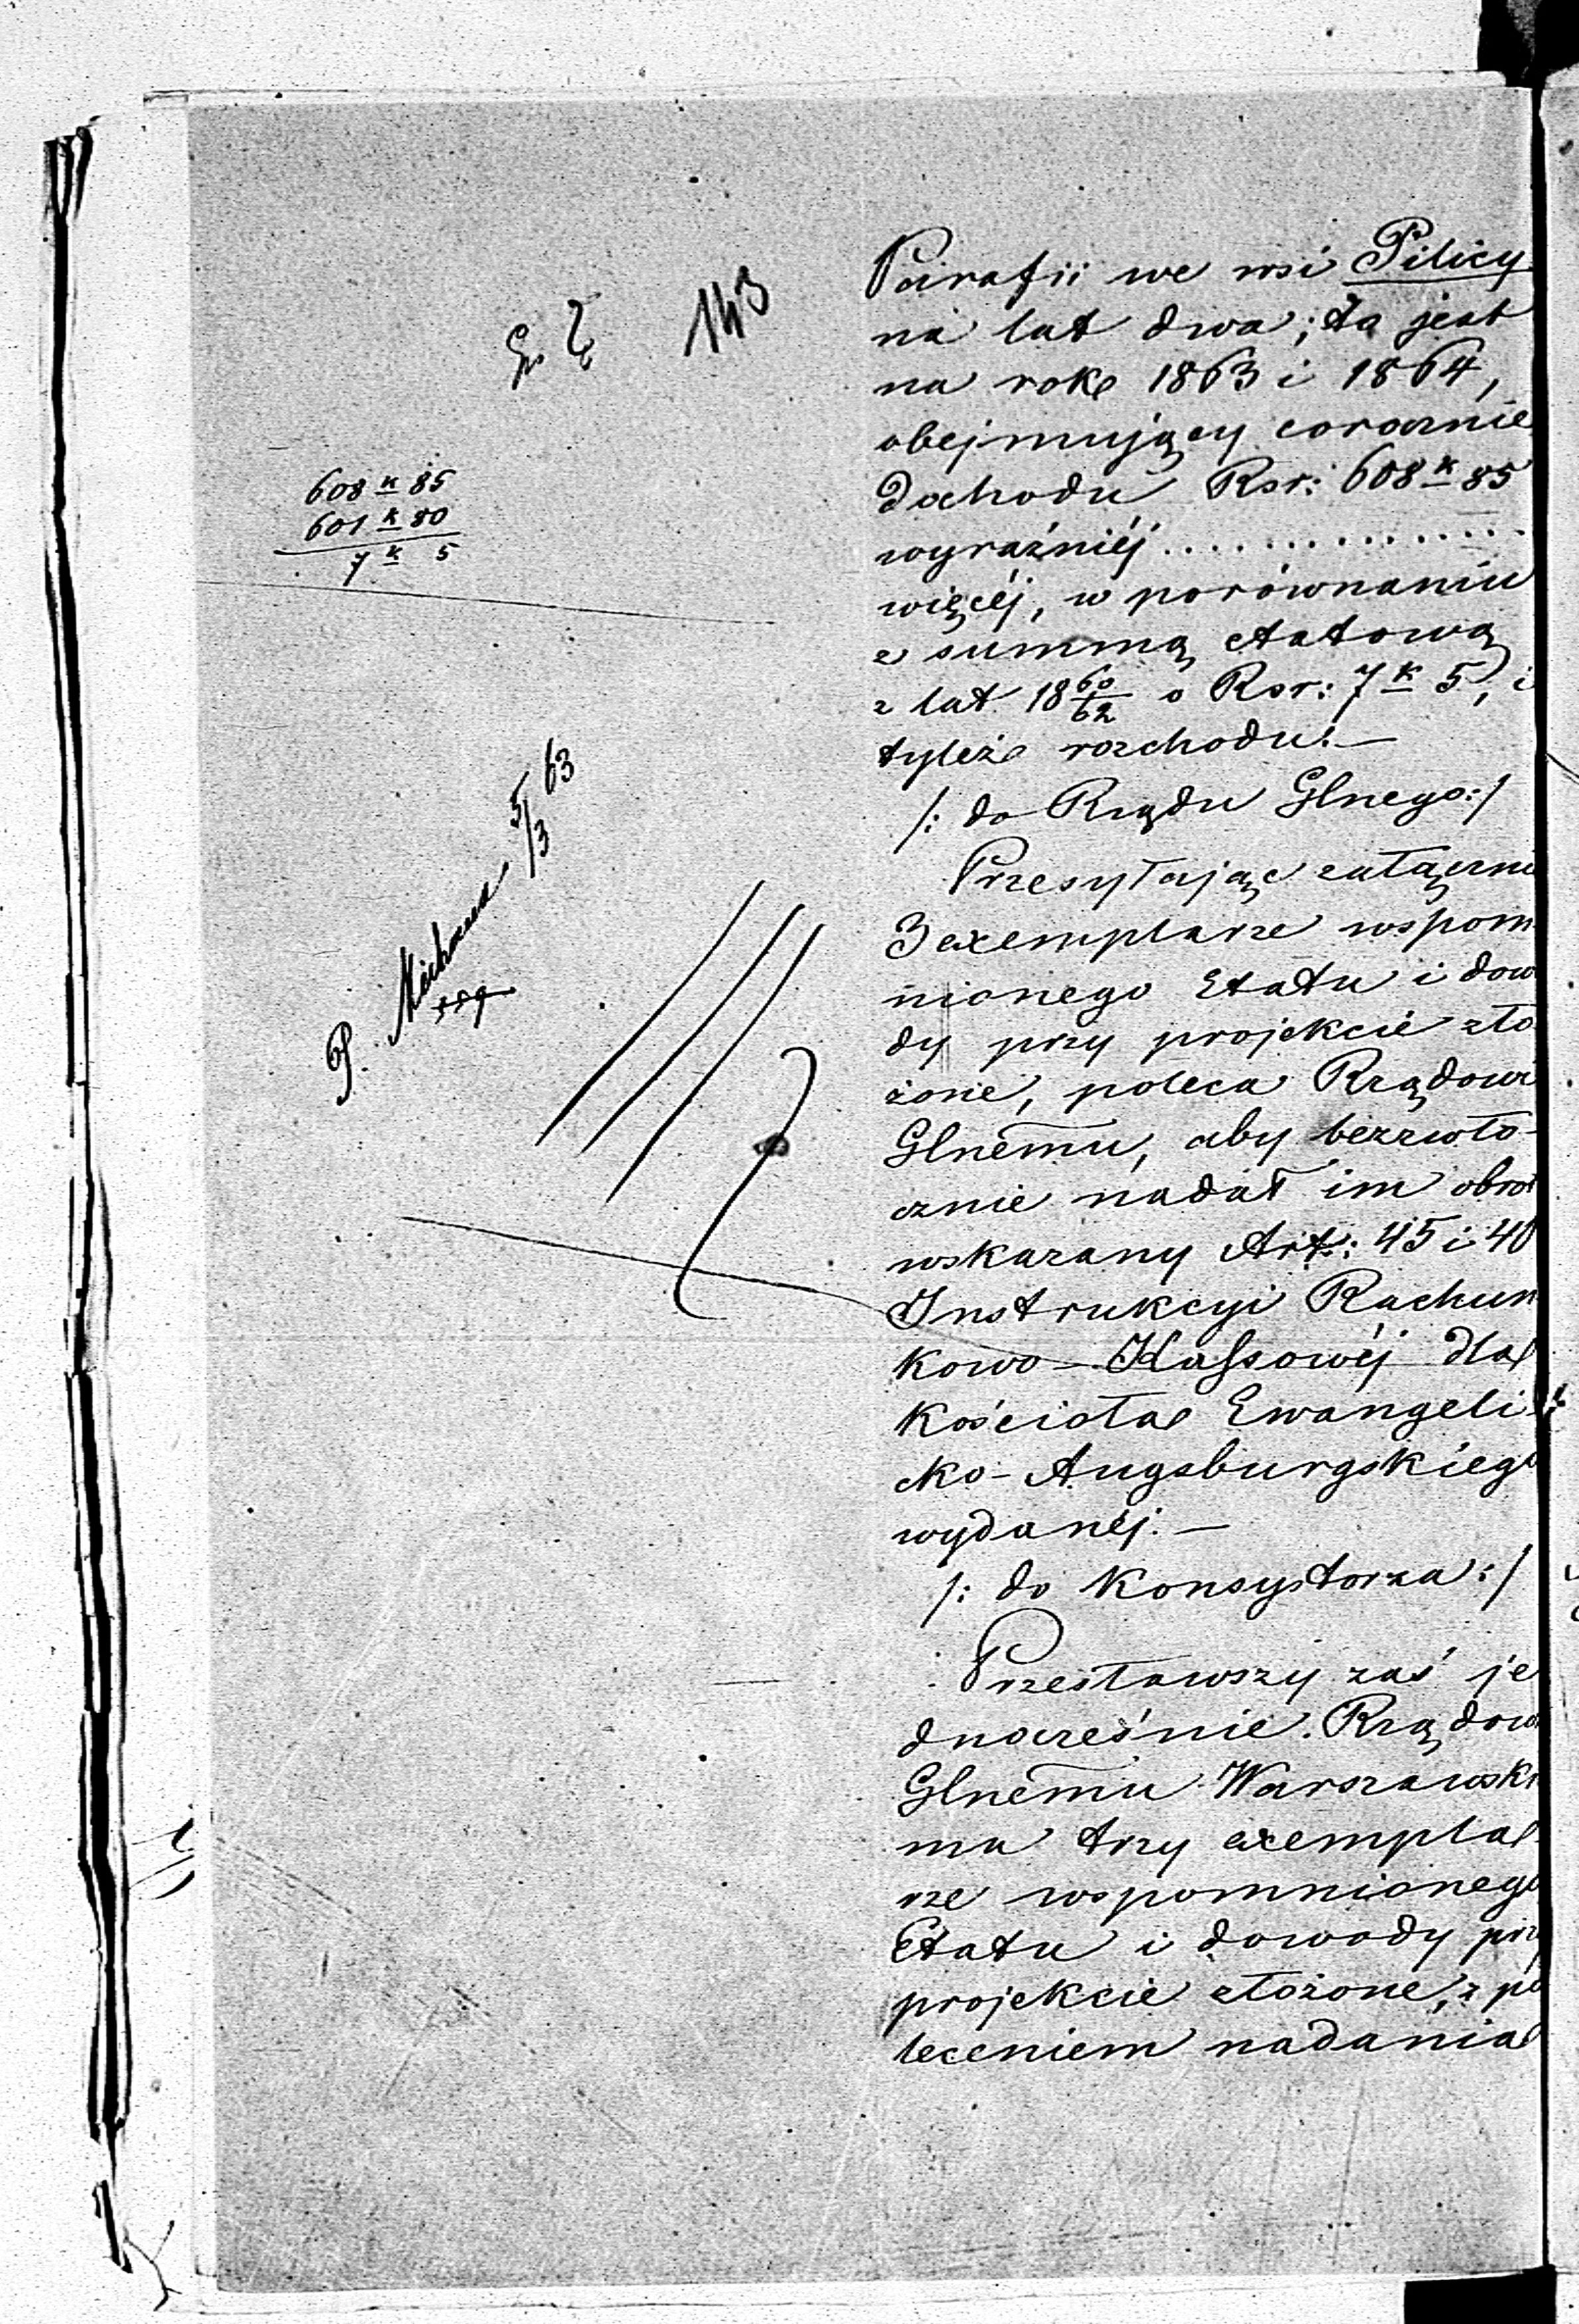 143
608 k 85
601 k 80
7 k 5
P.
5/3 63
Parafii we wsi Pilicy
na lat dwa; to jest
na rok 1863 i 1864,
obejmujący corocznie
dochodu Rsr: 608 k 85
wyraźniéj ...............
więcéj, w porównaniu
z summą etatową
z lat 18 60/62 o Rsr: 7 k 5, i
tyleż rozchodu. —
/: do Rządu Glnego:/
Przesyłając załączni
3 exemplarze wspom
nionego Etatu i dow
dy przy projekcie zło
żone, poleca Rządowi
Glnemu, aby bezzwło-
cznie nadał im obrot
wskazany Art: 45 i 40
Instrukcyi Rachun
kowo-Kassowéj dla
Kościoła Ewangeli
cko-Augsburgskiego
wydanéj. —
/: do Konsystorza :/
Przesławszy zaś je
dnocześnie Rządow
Glnemu Warszawski
mu trzy exempla
rze wspomnionego
Etatu i dowody przy
projekcie złożone, z po
leceniem nadania